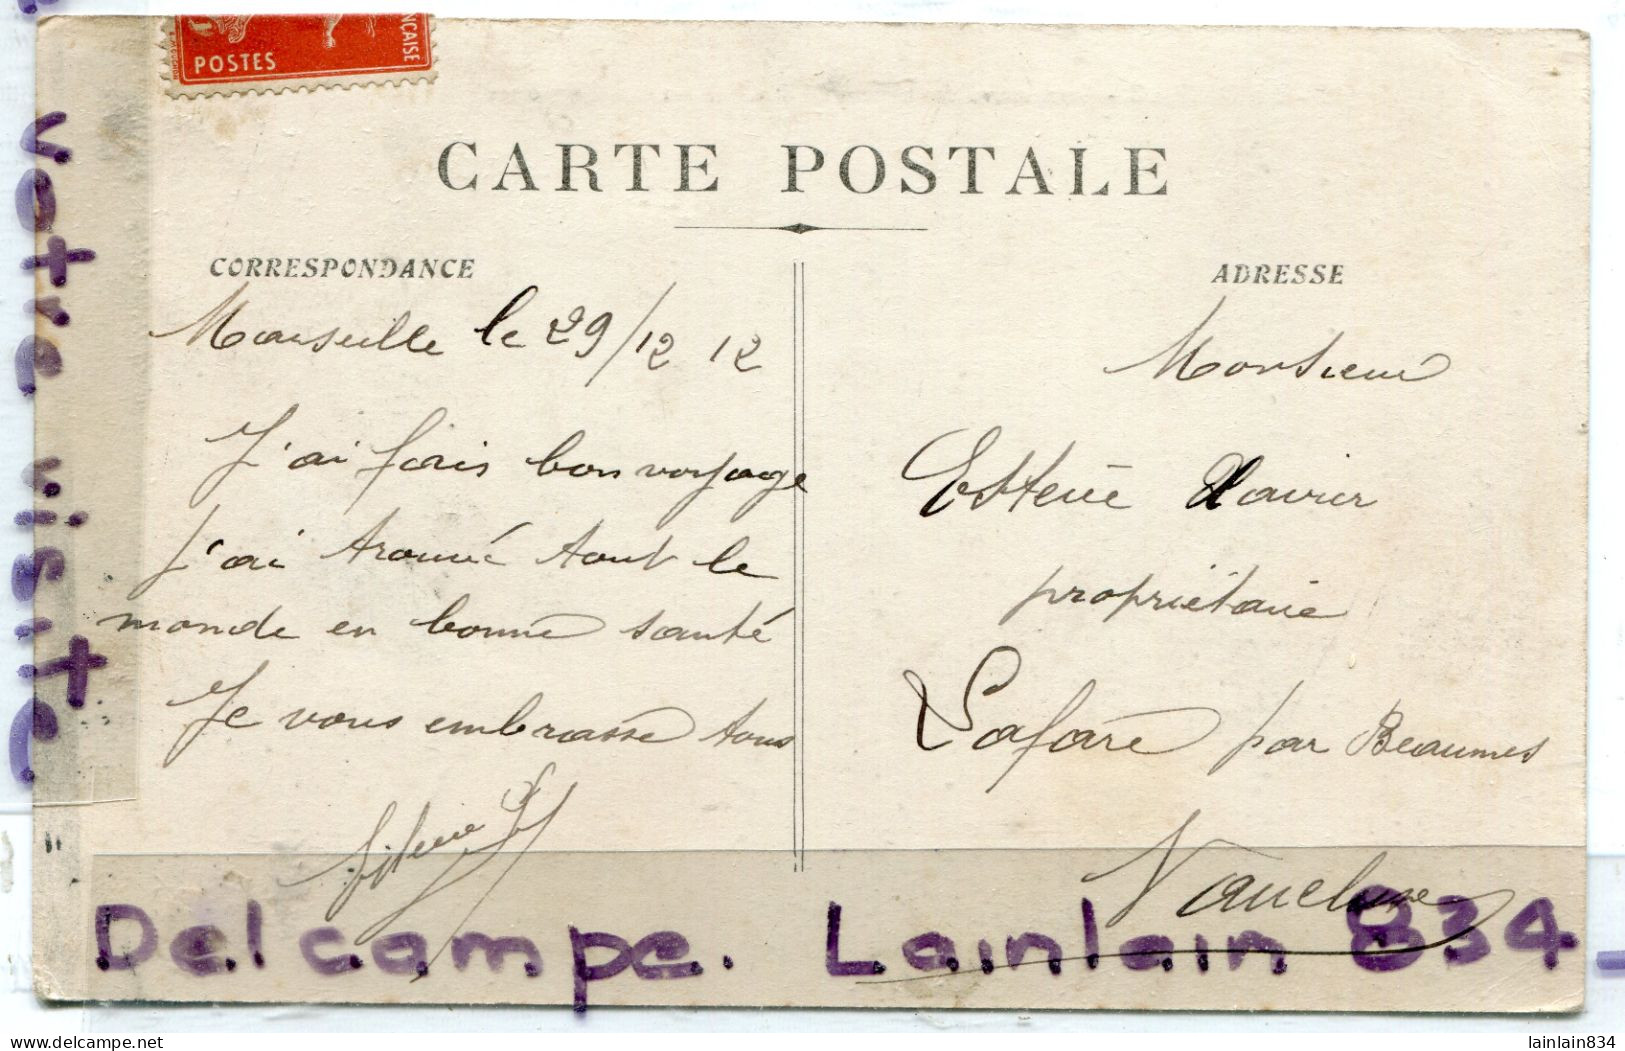 POSTES
ÇAISE
CARTE POSTALE
CORRESPONDANCE
Marseille le 29/12 12
J'ai fais bon voyage
J'ai trouvé tout le
monde en bonne santé
Je vous embrasse tous
ADRESSE
Monsieur
Estève Xavier
propriétaire
Lafare par Beaumes
Vaucluse
votre visite.
Delcampe. Lainlain 834_
lainlain834